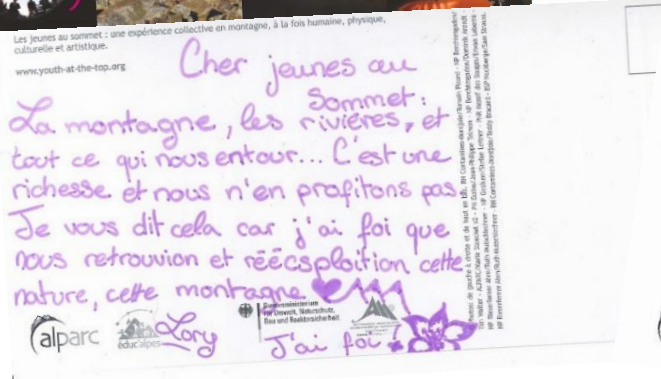 Les Jeunes au sommet : une expérience collective en montagne, à la fois humaine, physique,
culturelle et artistique.
www.youth-at-the-top.org
Cher jeunes au
Sommet :
La montagne, les rivières, et
tout ce qui nous entour... C'est une
richesse et nous n'en profitons pas
Je vous dit cela car j'ai foi que
nous retrouvion et réécsploition cette
nature, cette montagne
Bundesministerium
für Umwelt, Naturschutz,
Bau und Reaktorsicherheit
alparc
éduc'alpes
Lory
J'ai foi !